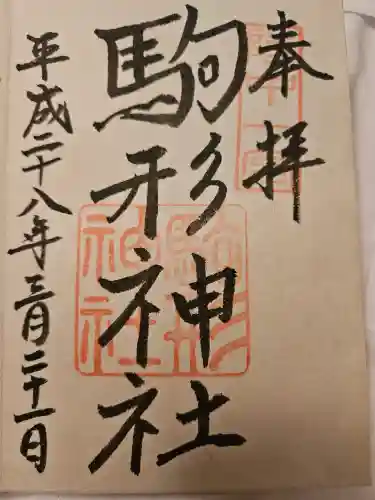 奉拝
駒形神社
駒形
神社
平成二十八年三月二十一日